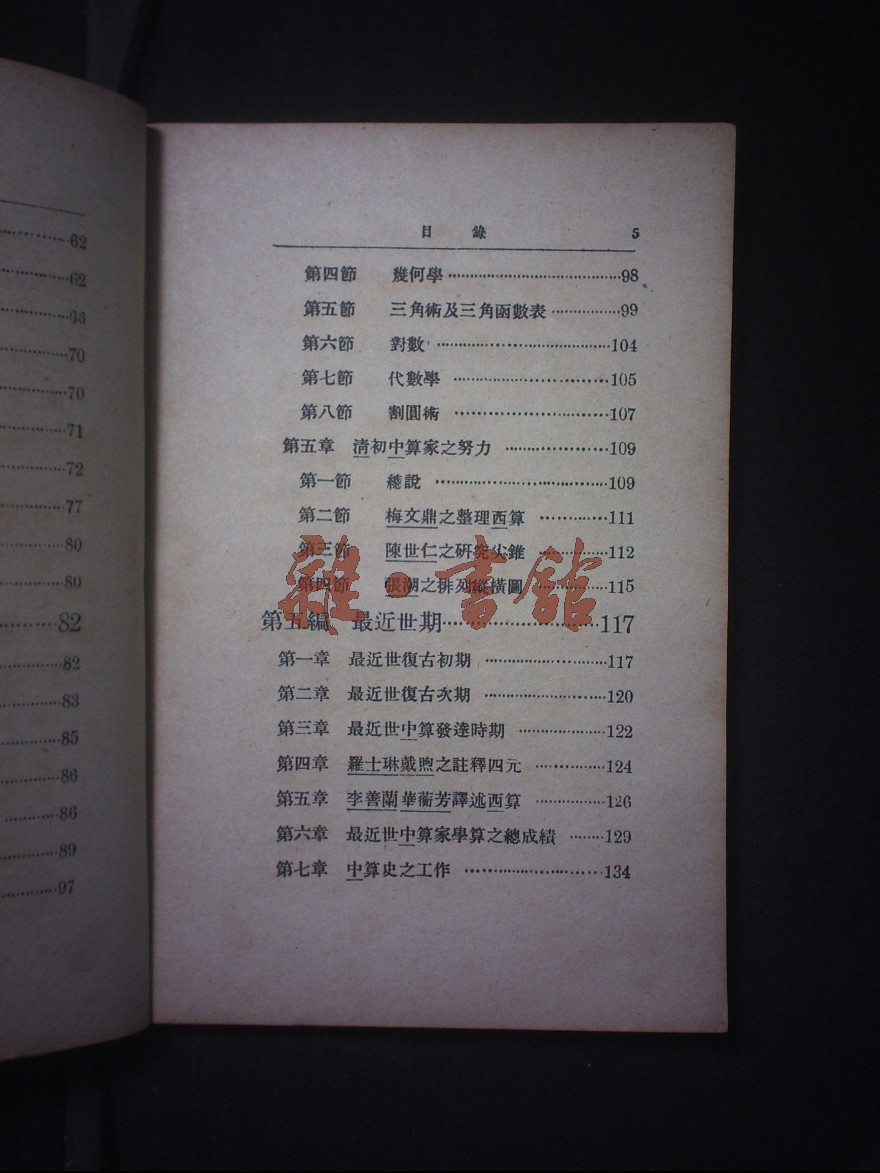 62
62
68
70
70
71
72
77
80
80
82
82
83
85
86
86
89
97
目錄 5
第四節 幾何學……………98
第五節 三角術及三角函數表……………99
第六節 對數……………104
第七節 代數學……………105
第八節 割圓術……………107
第五章 清初中算家之努力……………109
第一節 總說……………109
第二節 梅文鼎之整理西算……………111
第三節 陳世仁之研究尖錐……………112
第四節 張潮之排列縱橫圖……………115
第五編 最近世期……………117
第一章 最近世復古初期……………117
第二章 最近世復古次期……………120
第三章 最近世中算發達時期……………122
第四章 羅士琳戴煦之註釋四元……………124
第五章 李善蘭華蘅芳譯述西算……………126
第六章 最近世中算家學算之總成績……………129
第七章 中算史之工作……………134
雜·書館